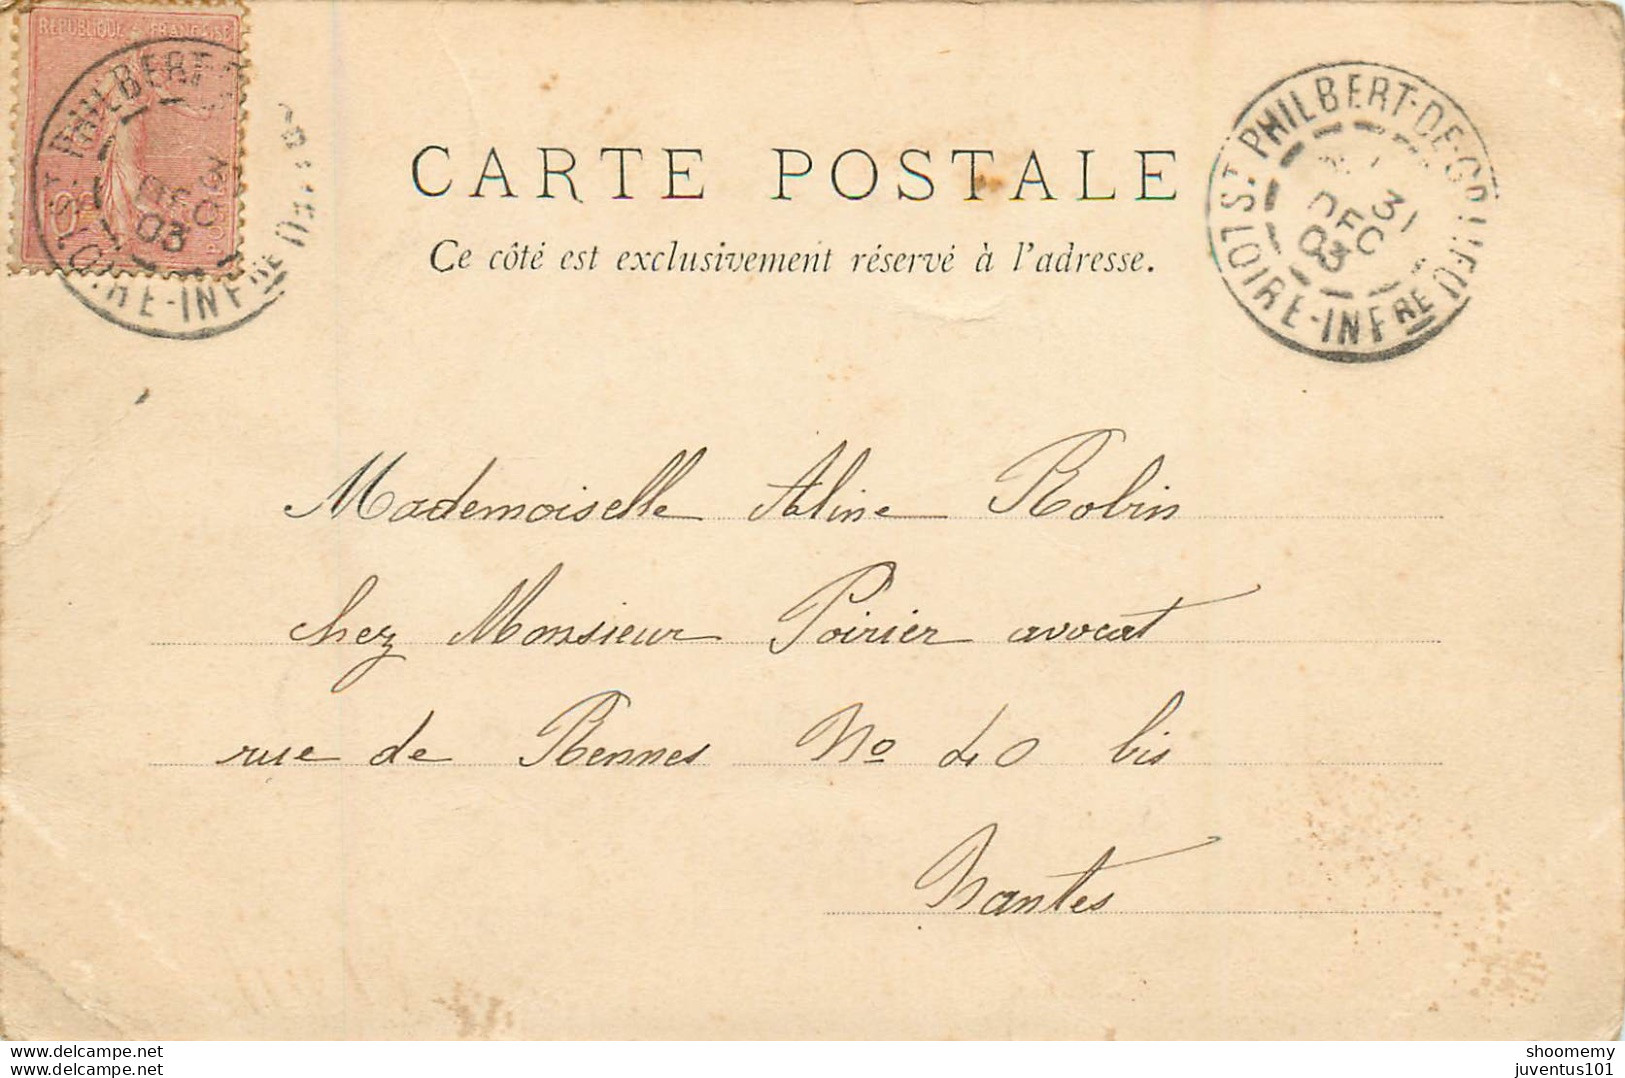 REPUBLIQUE FRANÇAISE
ST PHILBERT
31
DEC
03
LOIRE-INFRE
CARTE POSTALE
Ce côté est exclusivement réservé à l'adresse.
ST PHILBERT-DE-GD LIEU
31
DEC
03
LOIRE-INFRE
Mademoiselle Aline Robin
chez Monsieur Poirier avocat
rue de Rennes No 40 bis
Nantes
www.delcampe.net
shoomemy
juventus101